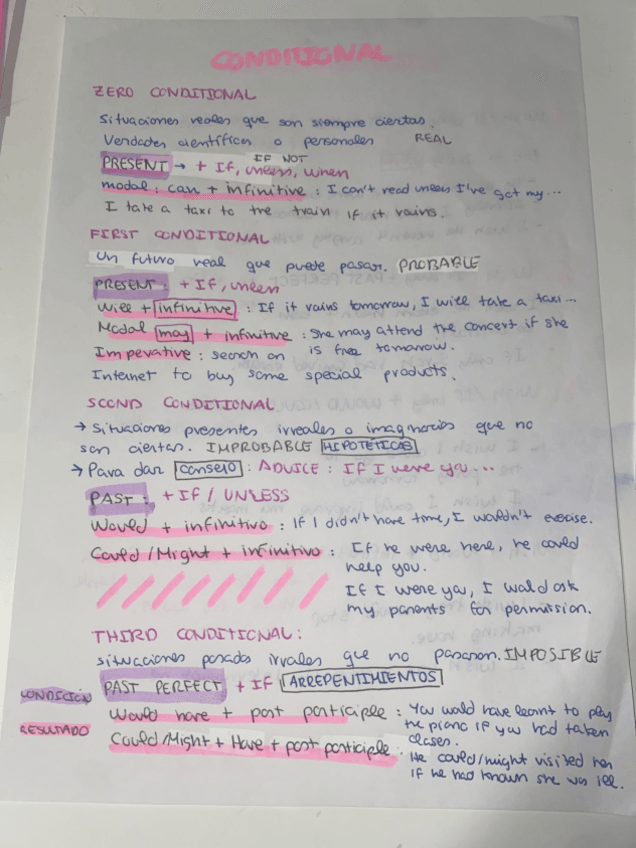 CONDITIONAL
ZERO CONDITIONAL
Situaciones reales que son siempre ciertas.
Verdades científicas o personales REAL
IF NOT
PRESENT → + If, unless, when
modal: can + infinitive : I can't read unless I've got my...
I take a taxi to the train if it rains.
FIRST CONDITIONAL
Un futuro real que puede pasar. PROBABLE
PRESENT: + If, unless
Will + infinitive : If it rains tomorrow, I will take a taxi...
Modal may + infinitive : She may attend the concert if she
Imperative : search on is free tomorrow.
Internet to buy some special products.
SCOND CONDITIONAL
→ Situaciones presentes irreales o imaginarias que no
son ciertas. IMPROBABLE HIPOTÉTICAS
→ Para dar CONSEJO : ADVICE : If I were you...
PAST : + IF / UNLESS
Would + infinitivo : If I didn't have time, I wouldn't exercise.
Could/Might + infinitivo : If he were here, he could
help you.
If I were you, I would ask
my parents for permission.
THIRD CONDITIONAL:
situaciones pasadas irreales que no pasaron. IMPOSIBLE
CONDICIÓN PAST PERFECT + IF ARREPENTIMIENTOS
Would have + past participle : You would have learnt to play
RESULTADO the piano if you had taken
classes.
Could/Might + Have + past participle : He could/might visited her
if he had known she was ill.